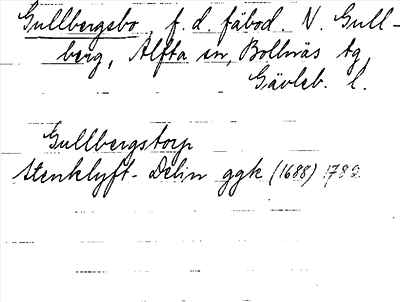 Gullbergsbo, f. d. fäbod. N. Gull-
berg, Alfta sn, Bollnäs tg,
Gävleb. l.
Gullbergstorp
Stenklyft- Delin ggk (1688) 1789.